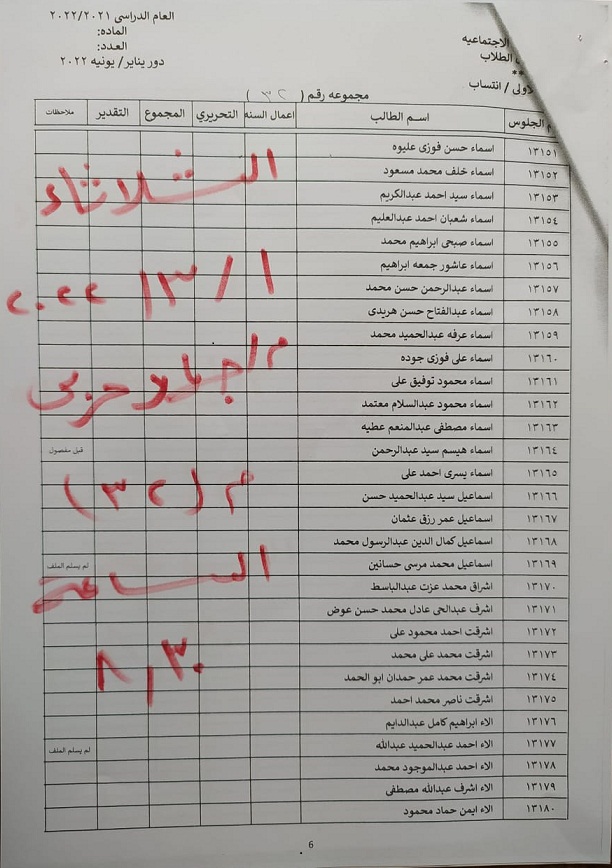 العام الدراسى ٢٠٢٢/٢٠٢١
المادة:
العدد:
دور يناير/ يونيه ٢٠٢٢
الاجتماعيه
الطلاب
**
اولى / انتساب
مجموعه رقم ( ٣٢ )
الجلوس اسـم الطالب اعمال السنه التحريري المجموع التقدير ملاحظات
١٣١٥١ اسماء حسن فوزى عليوه
١٣١٥٢ اسماء خلف محمد مسعود
١٣١٥٣ اسماء سيد احمد عبدالكريم
١٣١٥٤ اسماء شعبان احمد عبدالعليم
١٣١٥٥ اسماء صبحى ابراهيم محمد
١٣١٥٦ اسماء عاشور جمعه ابراهيم
١٣١٥٧ اسماء عبدالرحمن حسن محمد
١٣١٥٨ اسماء عبدالفتاح حسن هريدى
١٣١٥٩ اسماء عرفه عبدالحميد محمد
١٣١٦٠ اسماء على فوزى جوده
١٣١٦١ اسماء محمود توفيق على
١٣١٦٢ اسماء محمود عبدالسلام معتمد
١٣١٦٣ اسماء مصطفى عبدالمنعم عطيه
١٣١٦٤ اسماء هيسم سيد عبدالرحمن قبل مفصول
١٣١٦٥ اسماء يسرى احمد على
١٣١٦٦ اسماعيل سيد عبدالحميد حسن
١٣١٦٧ اسماعيل عمر رزق عثمان
١٣١٦٨ اسماعيل كمال الدين عبدالرسول محمد
١٣١٦٩ اسماعيل محمد مرسى حسانين لم يسلم الملف
١٣١٧٠ اشراق محمد عزت عبدالباسط
١٣١٧١ اشرف عبدالحى عادل محمد حسن عوض
١٣١٧٢ اشرقت احمد محمود على
١٣١٧٣ اشرقت محمد على محمد
١٣١٧٤ اشرقت محمد عمر حمدان ابو الحمد
١٣١٧٥ اشرقت ناصر محمد احمد
١٣١٧٦ الاء ابراهيم كامل عبدالدايم
١٣١٧٧ الاء احمد عبدالحميد عبدالله لم يسلم الملف
١٣١٧٨ الاء احمد عبدالموجود محمد
١٣١٧٩ الاء اشرف عبدالله مصطفى
١٣١٨٠ الاء ايمن حماد محمود
الثلاثاء
١ / ٣ / ٢٠٢٢
م (٣٢)
الساعة
٨,٣٠
6